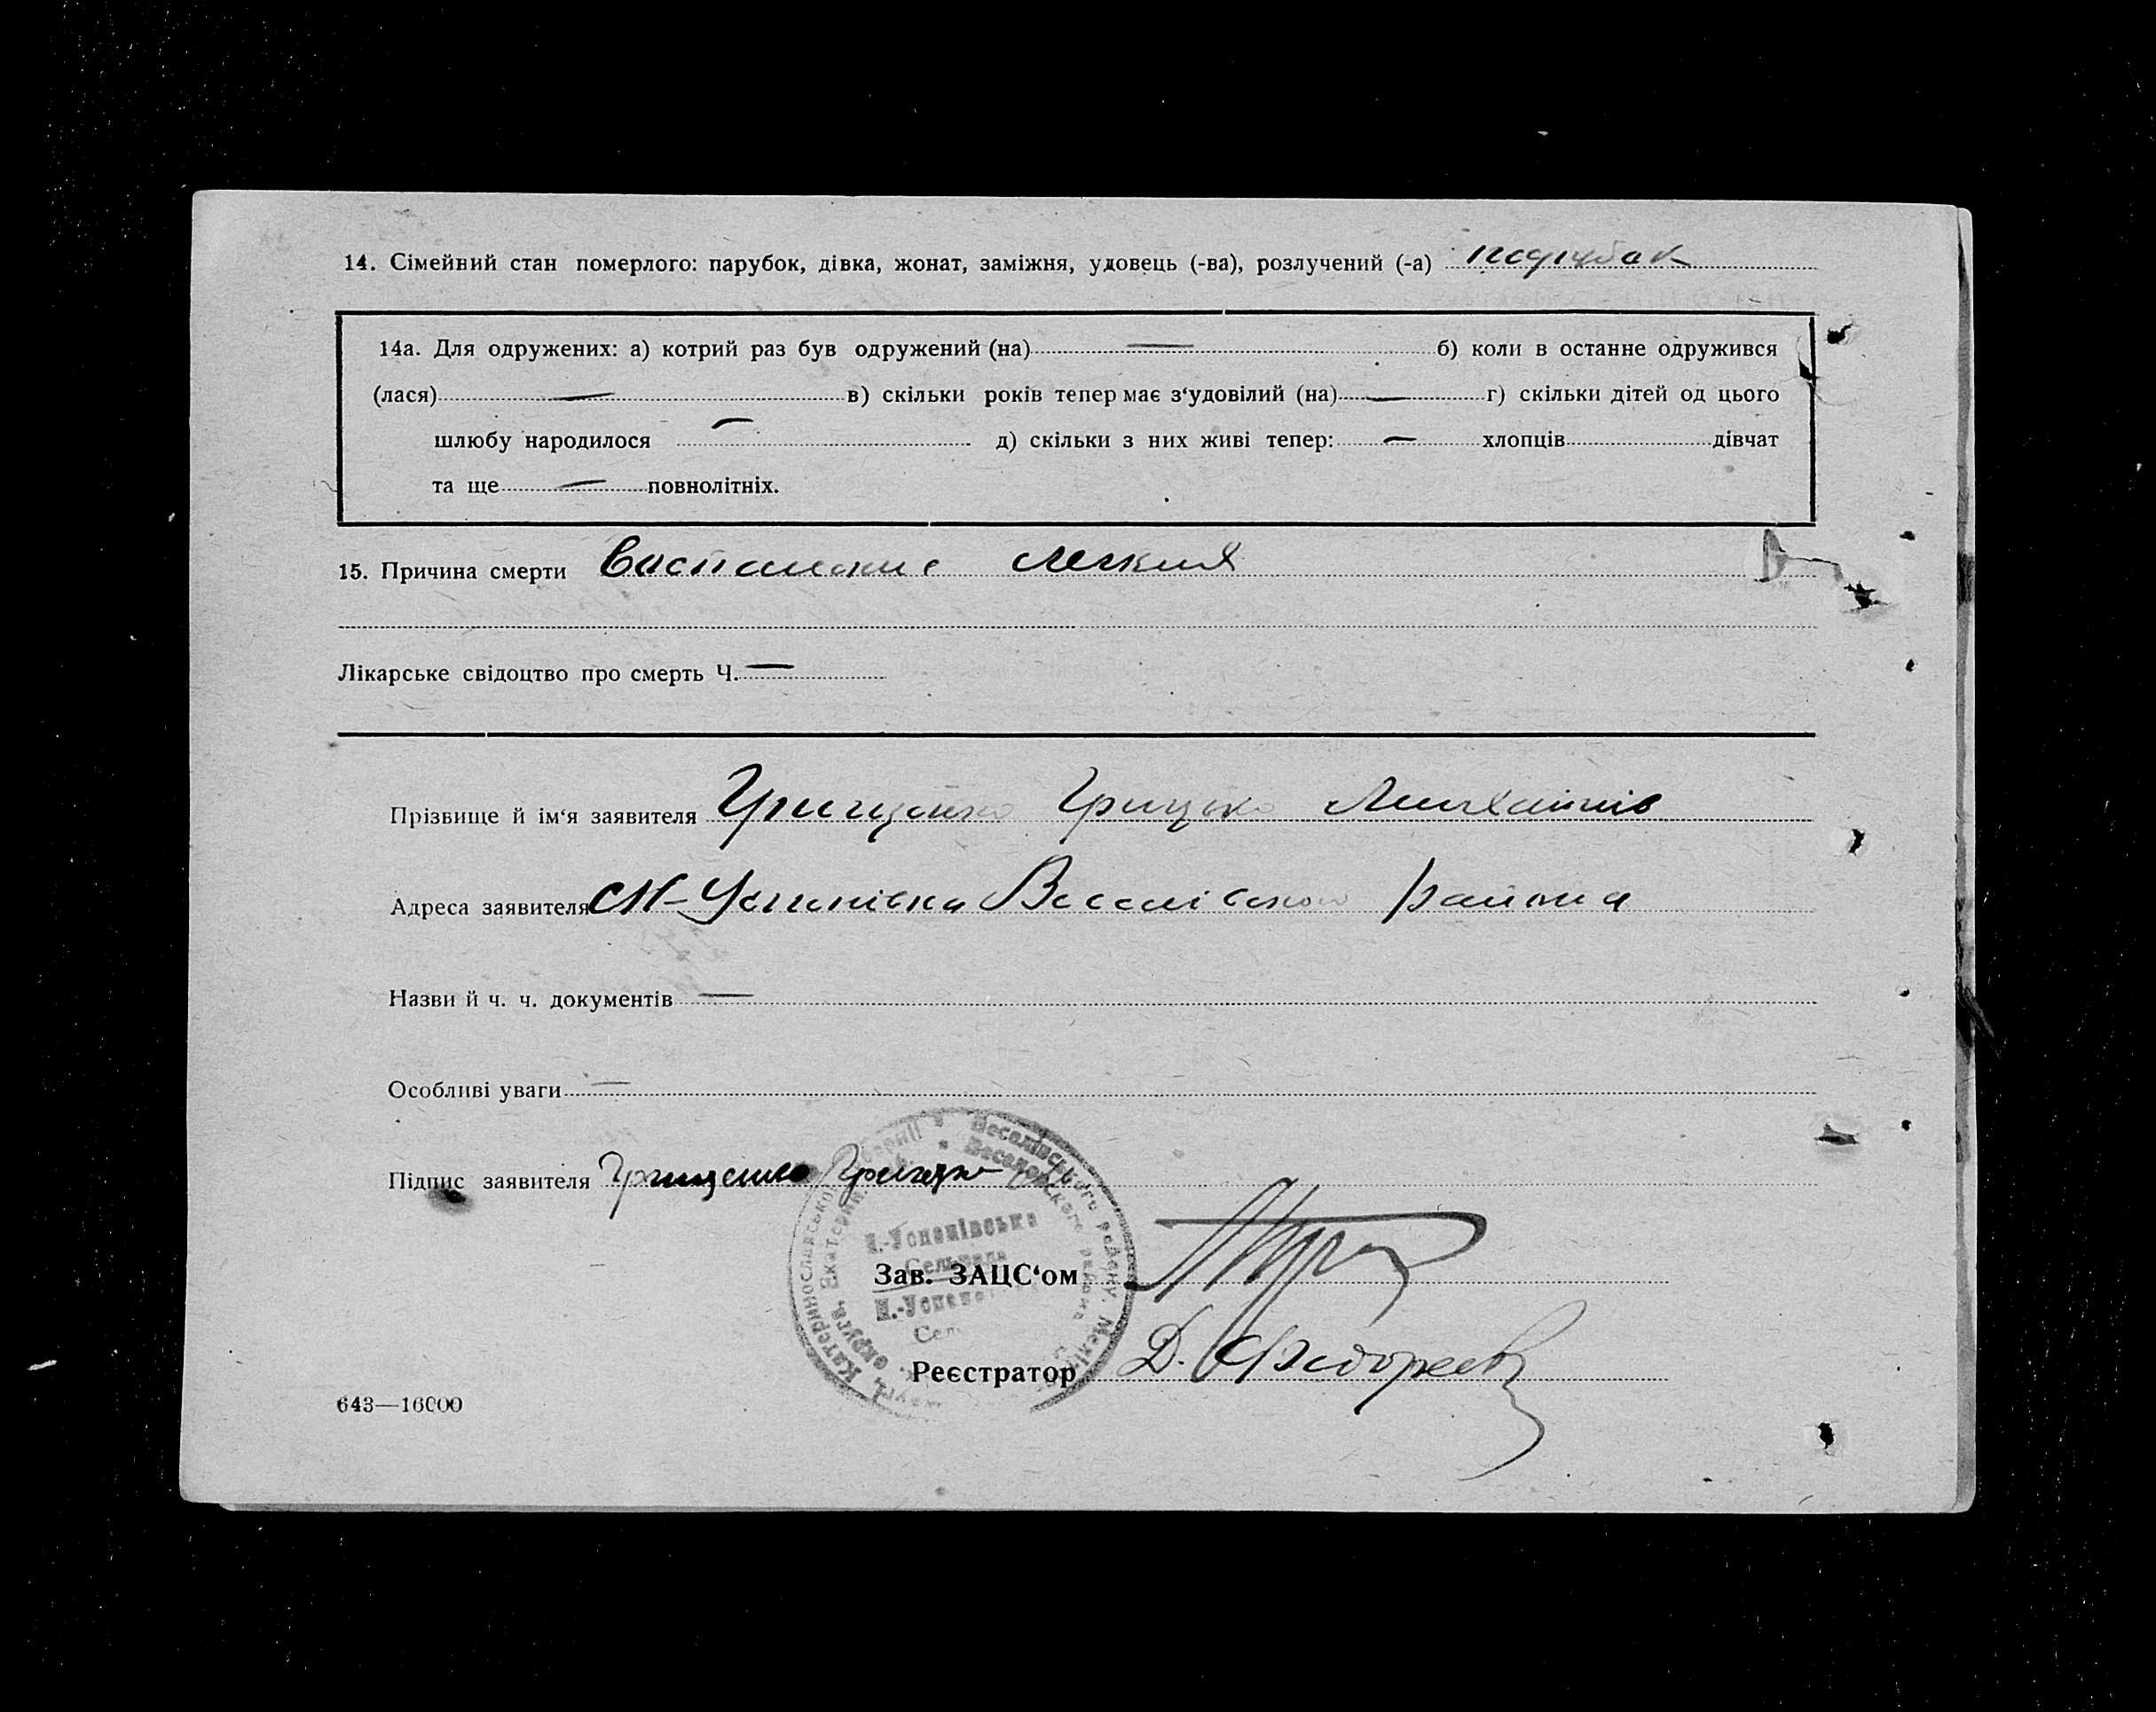 14. Сімейний стан померлого: парубок, дівка, жонат, заміжня, удовець (-ва), розлучений (-а) парубак
14а. Для одружених: а) котрий раз був одружений (на) — б) коли в останне одружився
(лася) — в) скільки років тепер має з‘удовілий (на) — г) скільки дітей од цього
шлюбу народилося — д) скільки з них живі тепер: — хлопців дівчат
та ще — повнолітніх.
15. Причина смерти Воспаление легких
Лікарське свідоцтво про смерть Ч. —
Прізвище й ім‘я заявителя Грищенко Грицько Михайлів
Адреса заявителя Успенівка Веселівського района
Назви й ч. ч. документів —
Особливі уваги —
Підпис заявителя Грищенко
Веселівського району, Меліт
Веселовского района
Катеринославської
Н.-Успенівська
Сельрада
Н.-Успенов
Сел
Зав. ЗАЦС‘ом
Реєстратор Д.
643—16000